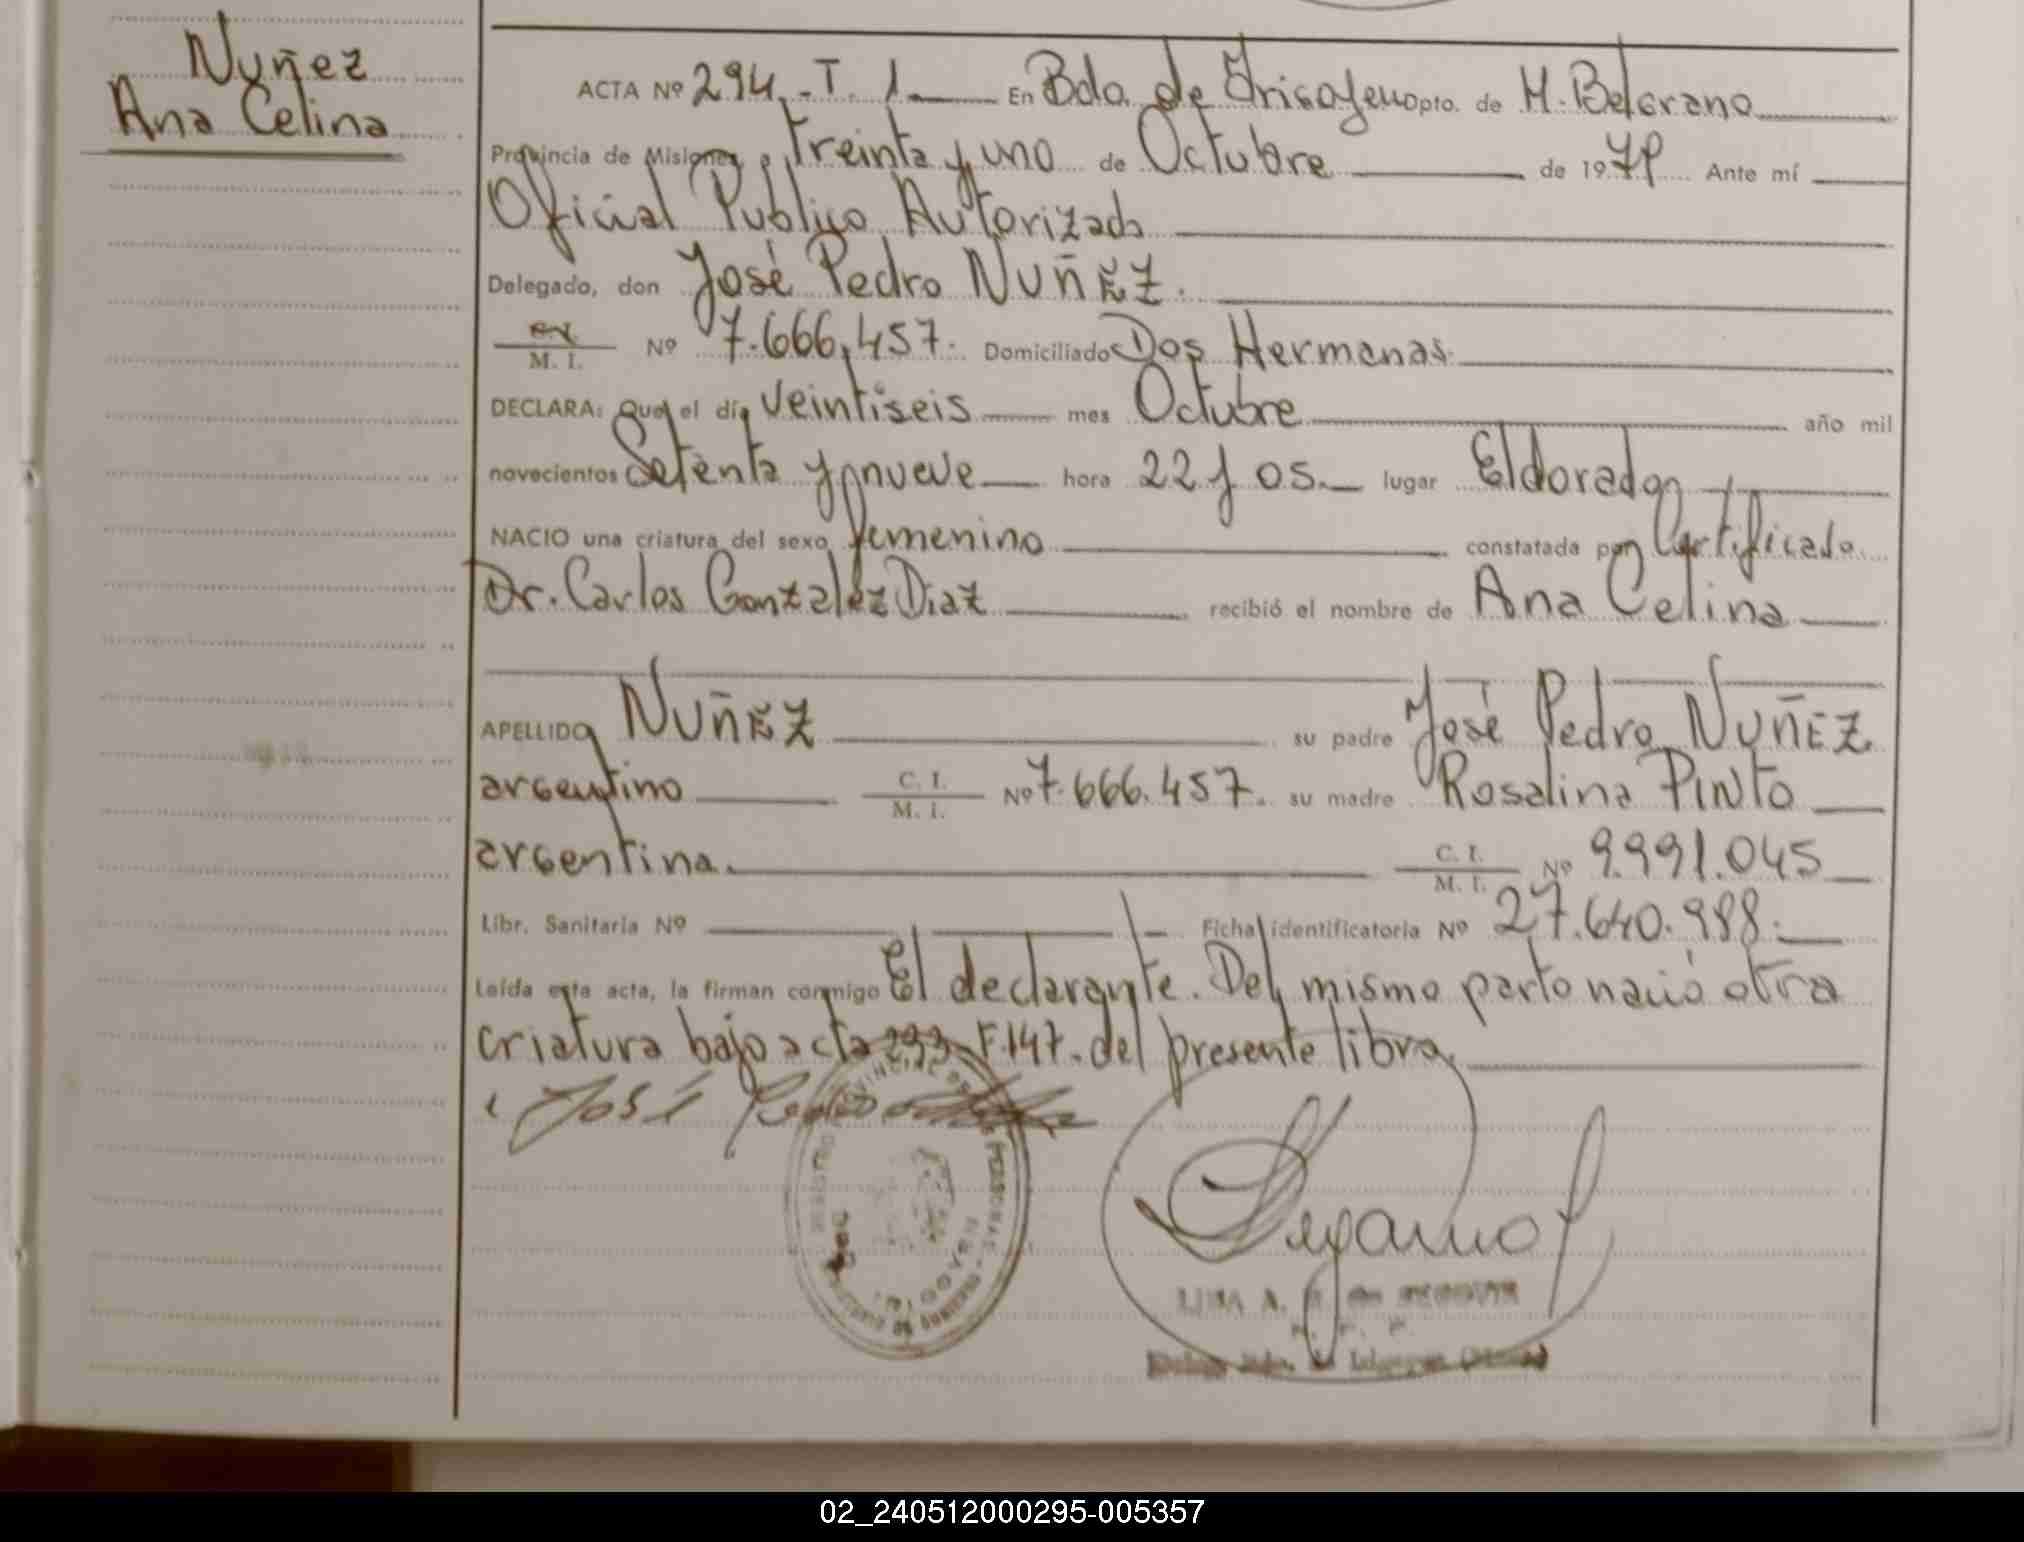 Nuñez
Ana Celina
ACTA Nº 294.-T. 1 En Bdo. de Irigoyen Dpto. de M. Belgrano
Provincia de Misiones a Treinta y uno de Octubre de 1979 Ante mí
Oficial Publico Autorizado
Delegado, don José Pedro NUÑEZ.
M. I. Nº 7.666.457. Domiciliado Dos Hermanas.
DECLARA: Que el día veintiseis mes Octubre año mil
novecientos Setenta y nueve hora 22 y 05. lugar Eldorado
NACIO una criatura del sexo femenino constatada por Certificado
Dr. Carlos Gonzalez Diaz recibió el nombre de Ana Celina
APELLIDO NUÑEZ su padre José Pedro NUÑEZ
argentino C. I. M. I. Nº 7.666.457. su madre Rosalina PINTO
argentina. C. I. M. I. Nº 9.991.045
Libr. Sanitaria Nº Ficha identificatoria Nº 27.640.988.
Leída esta acta, la firman conmigo El declarante. Del mismo parto nació otra
criatura bajo acta 293 F.147. del presente libro.
José Pedro
LINA A.
02_240512000295-005357